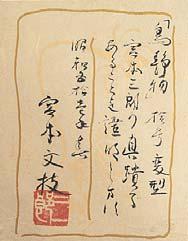 「鳥静物」拾号変型
宮本三郎の真蹟で
あることを證明します
昭和五拾壱年
宮本文枝